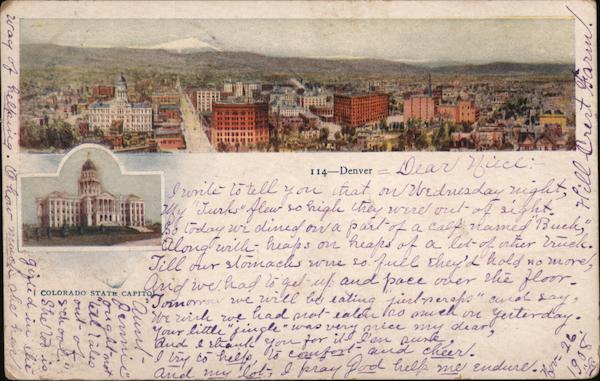 114—Denver
COLORADO STATE CAPITOL
Hill Crest Farm!
Dear Niece:-
I write to tell you that on Wednesday night,
My "Turks" flew so high they were out of sight.
So today we dined on a part of a calf named "Buck,"
Along with heaps on heaps of a lot of other truck.
Till our stomachs were so full they'd hold no more,
And we had to get up and pace over the floor.
Tomorrow we will be eating "just scraps" and say,
We wish we had not eaten so much on yesterday.
Your little "jingle" was very nice my dear,
And I thank you for it. I'm sure,
I try to help, to comfort and cheer.
And my lot, I pray God help me endure.
Nov. 26
1908.
Aunt
Jennie
ought not
tell tales
out of
school"
She is
gifted in the
way of helping. O how much she has